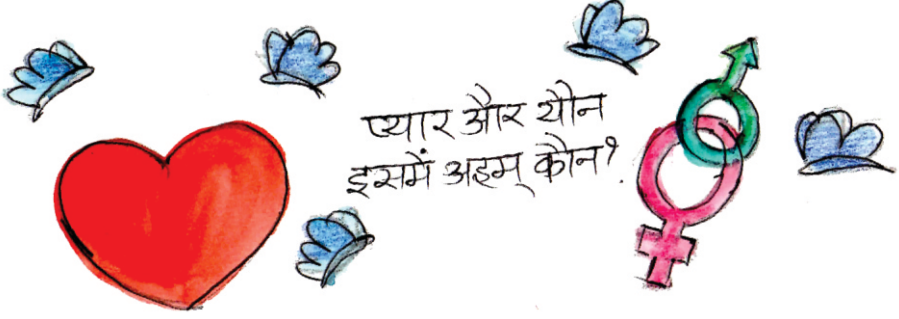 प्यार और यौन
इसमें अहम् कौन?